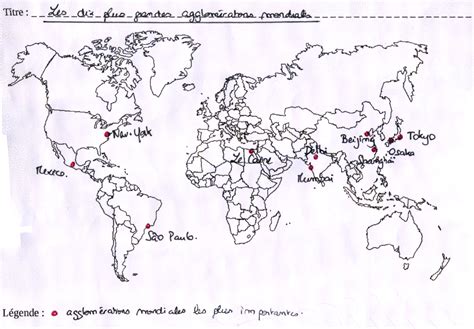 Titre : Les dix plus grandes agglomérations mondiales
New-York
Beijing
Tokyo
Delhi
Osaka
Le Caire
Shanghai
Mexico.
Mumbai
São Paulo.
Légende : agglomérations mondiales les plus importantes.